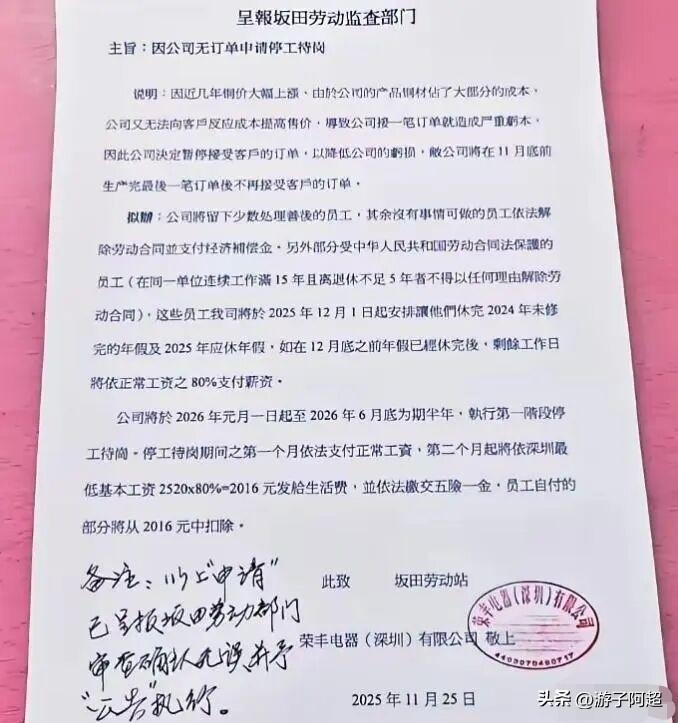 呈報坂田劳动监查部门
主旨：因公司无订单申请停工待岗
说明：因近几年铜价大幅上漲、由於公司的产品铜材佔了大部分的成本，
公司又无法向客戶反应成本提高售价，導致公司接一笔订单就造成严重虧本，
因此公司決定暂停接受客戶的订单，以降低公司的虧损，敝公司將在11月底前
生产完最後一笔订单後不再接受客戶的订单。
拟辦：公司將留下少数处理善後的员工，其余沒有事情可做的员工依法解
除劳动合同並支付经济補偿金。另外部分受中华人民共和国劳动合同法保護的
员工（在同一单位连续工作滿15年且离退休不足5年者不得以任何理由解除劳
动合同），这些员工我司將於2025年12月1日起安排讓他們休完2024年未修
完的年假及2025年应休年假，如在12月底之前年假已經休完後，剩餘工作日
將依正常工资之80%支付薪资。
公司將於2026年元月一日起至2026年6月底为期半年，執行第一階段停
工待岗。停工待岗期间之第一个月依法支付正常工資，第二个月起將依深圳最
低基本工资2520x80%=2016元发給生活费，並依法缴交五險一金，员工自付的
部分將从2016元中扣除。
备注：以上"申请"
已呈报坂田劳动部门
审查确认无误并予
"公告"执行。
此致 坂田劳动站
荣丰电器（深圳）有限公司 敬上
荣丰电器(深圳)有限公司
2025年11月25日
头条 @游子阿超